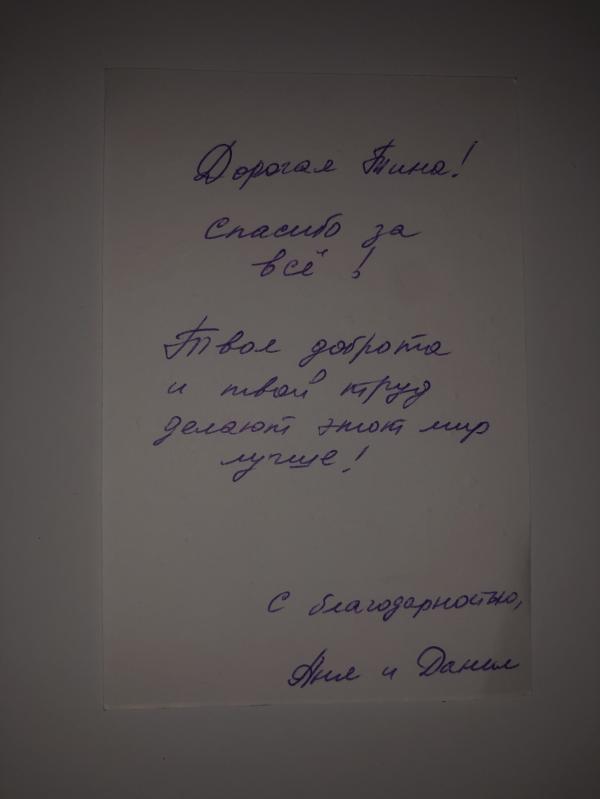 Дорогая Тина!
Спасибо за
всё!
Твоя доброта
и твой труд
делают этот мир
лучше!
С благодарностью,
Аня и Данил